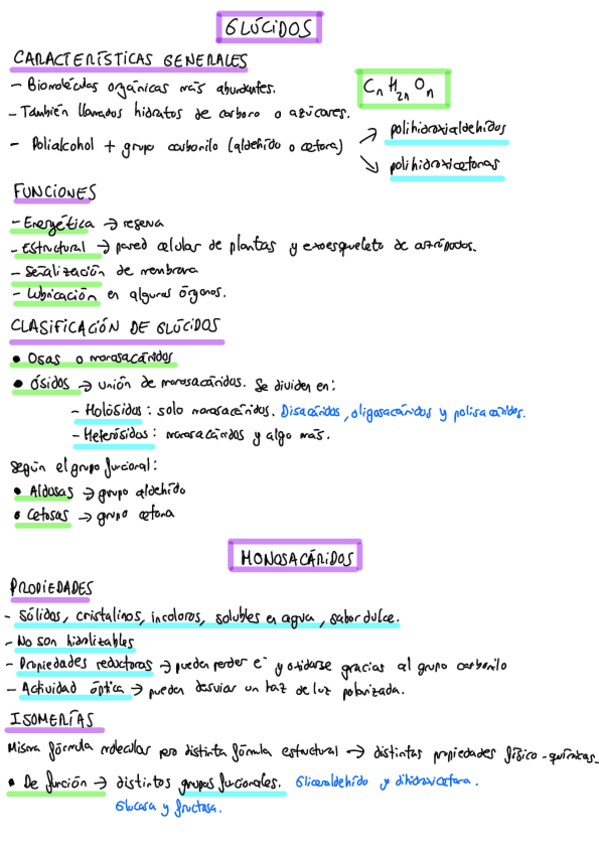 GLÚCIDOS
CARACTERÍSTICAS GENERALES
- Biomoléculas orgánicas más abundantes.
CnH2nOn
- También llamados hidratos de carbono o azúcares.
- Polialcohol + grupo carbonilo (aldehído o cetona)
→ polihidroxialdehídos
→ polihidroxicetonas
FUNCIONES
- Energética → reserva
- Estructural → pared celular de plantas y exoesqueleto de artrópodos.
- Señalización de membrana
- Lubricación en algunos órganos.
CLASIFICACIÓN DE GLÚCIDOS
• Osas o monosacáridos
• Ósidos → unión de monosacáridos. Se dividen en:
- Holósidos: solo monosacáridos. Disacáridos, oligosacáridos y polisacáridos.
- Heterósidos: monosacáridos y algo más.
Según el grupo funcional:
• Aldosas → grupo aldehído
• Cetosas → grupo cetona
MONOSACÁRIDOS
PROPIEDADES
- Sólidos, cristalinos, incoloros, solubles en agua, sabor dulce.
- No son hidrolizables
- Propiedades reductoras → pueden perder e⁻ y oxidarse gracias al grupo carbonilo
- Actividad óptica → pueden desviar un haz de luz polarizada.
ISOMERÍAS
Misma fórmula molecular pero distinta fórmula estructural → distintas propiedades físico-químicas.
• De función → distintos grupos funcionales. Gliceraldehído y dihidroxicetona.
Glucosa y fructosa.